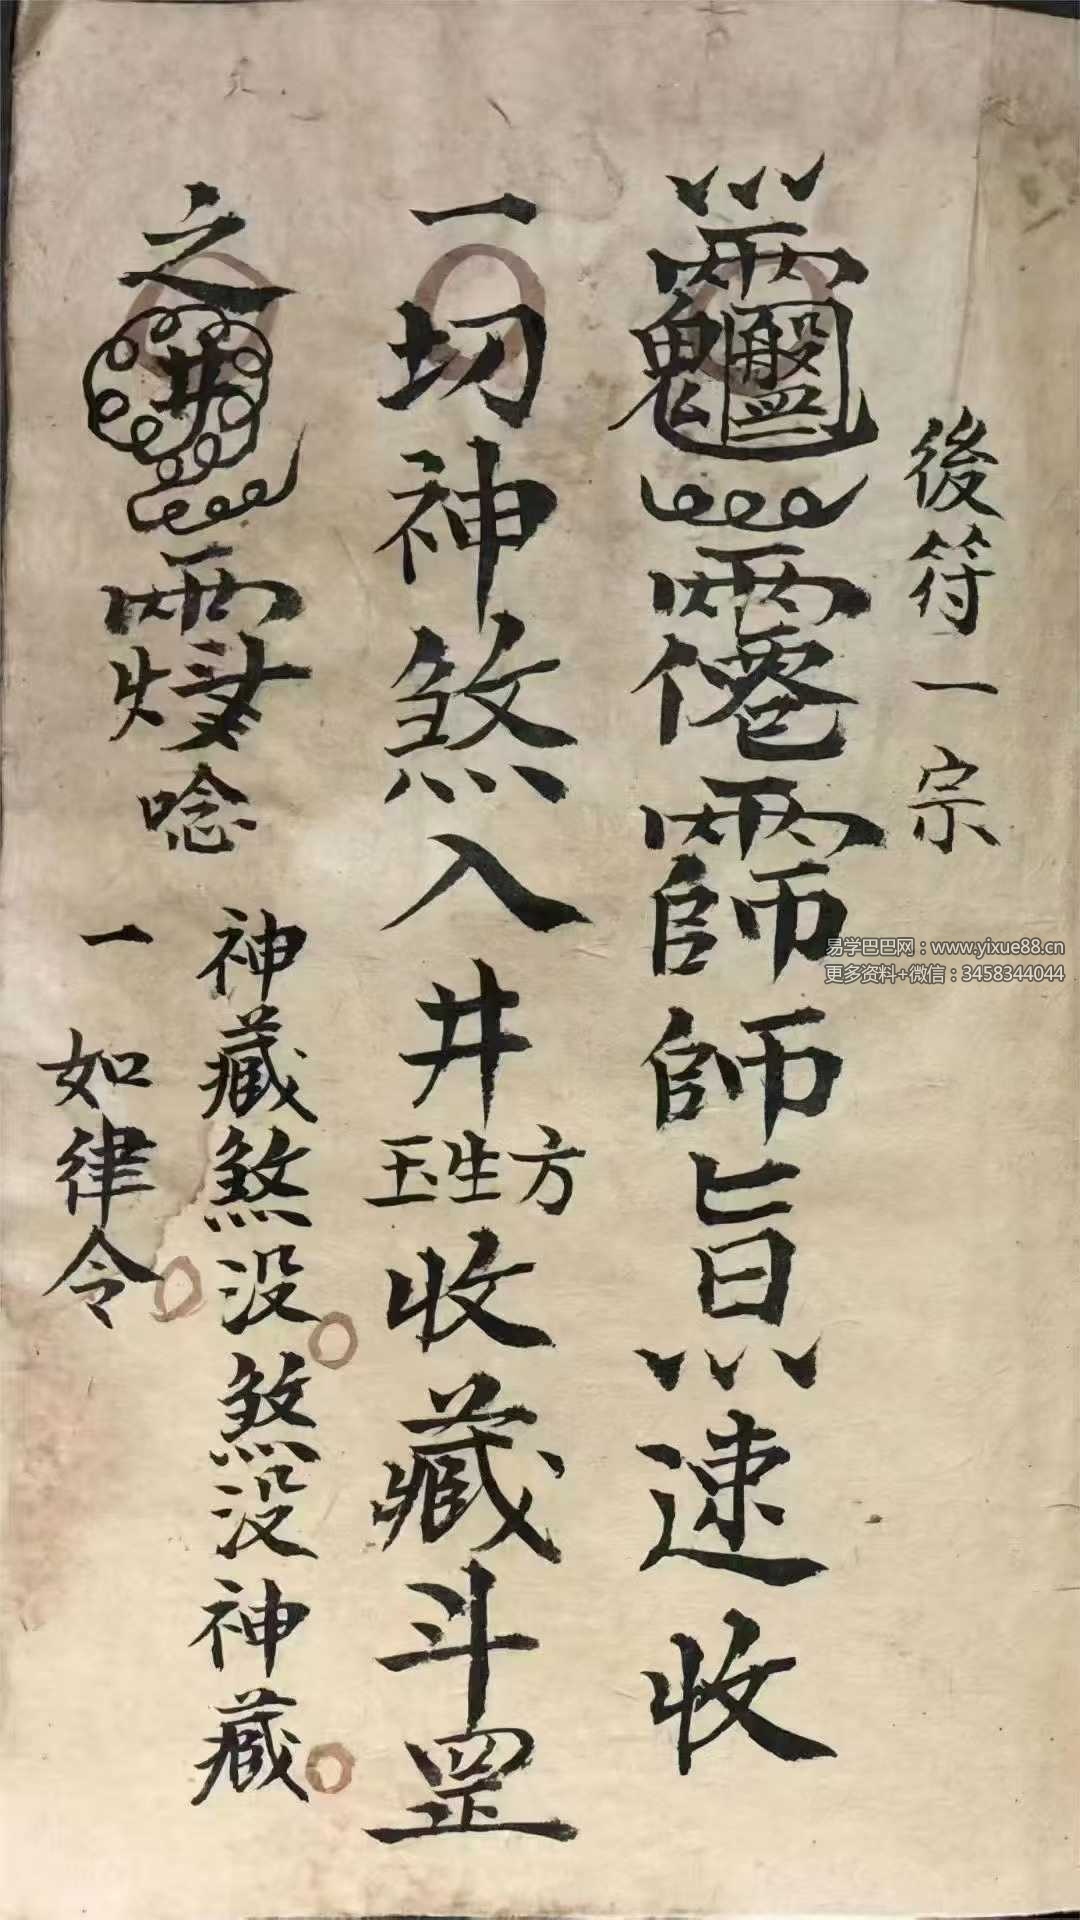 後符一宗
師師旨速收
一切神煞入井
方生玉
收藏斗罡
之井
唸
神藏煞没煞没神藏
一如律令
易学巴巴网：www.yixue88.cn
更多资料+微信：3458344044